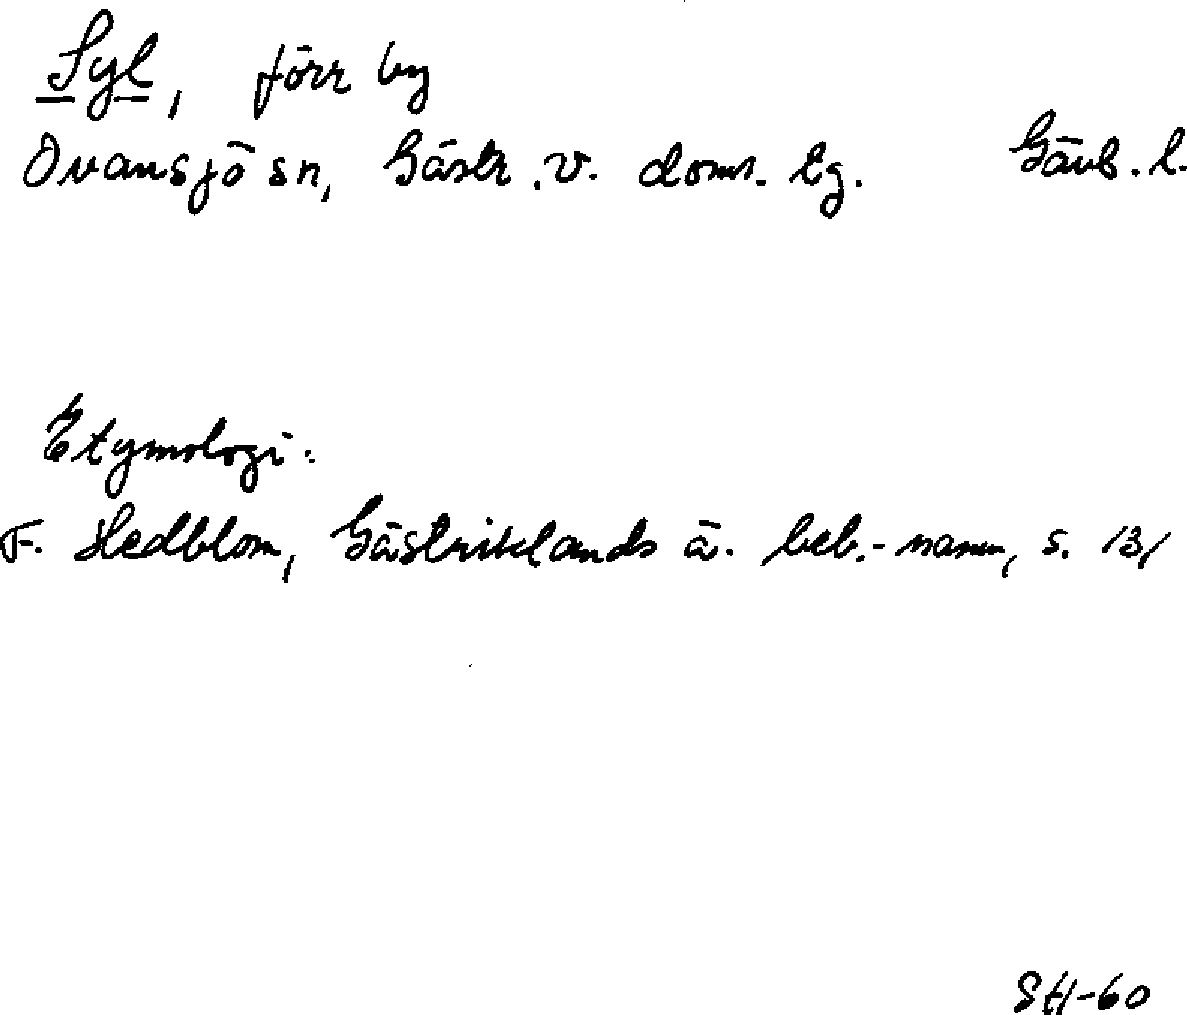 Syl, förr by
Ovansjö sn, Gästr. v. doms. tg. Gävb. l.
Etymologi:
F. Hedblom, Gästriklands ä. beb.-namn, s. 131
SH-60